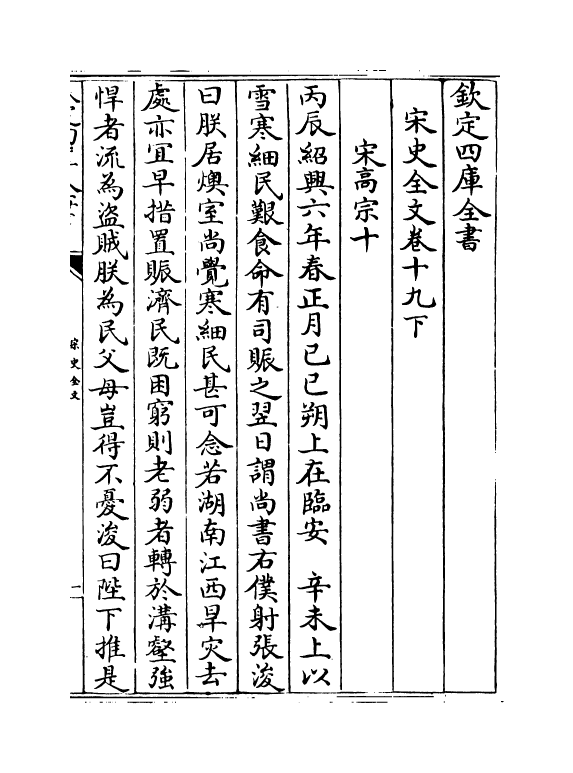 欽定四庫全書
宋史全文卷十九下
宋高宗十
丙辰紹興六年春正月己巳朔上在臨安　辛未上以
雪寒細民艱食命有司賑之翌日謂尚書右僕射張浚
曰朕居燠室尚覺寒細民甚可念若湖南江西旱灾去
處亦宜早措置賑濟民既困窮則老弱者轉於溝壑強
悍者流為盜賊朕為民父母豈得不憂浚曰陛下推是
宋史全文